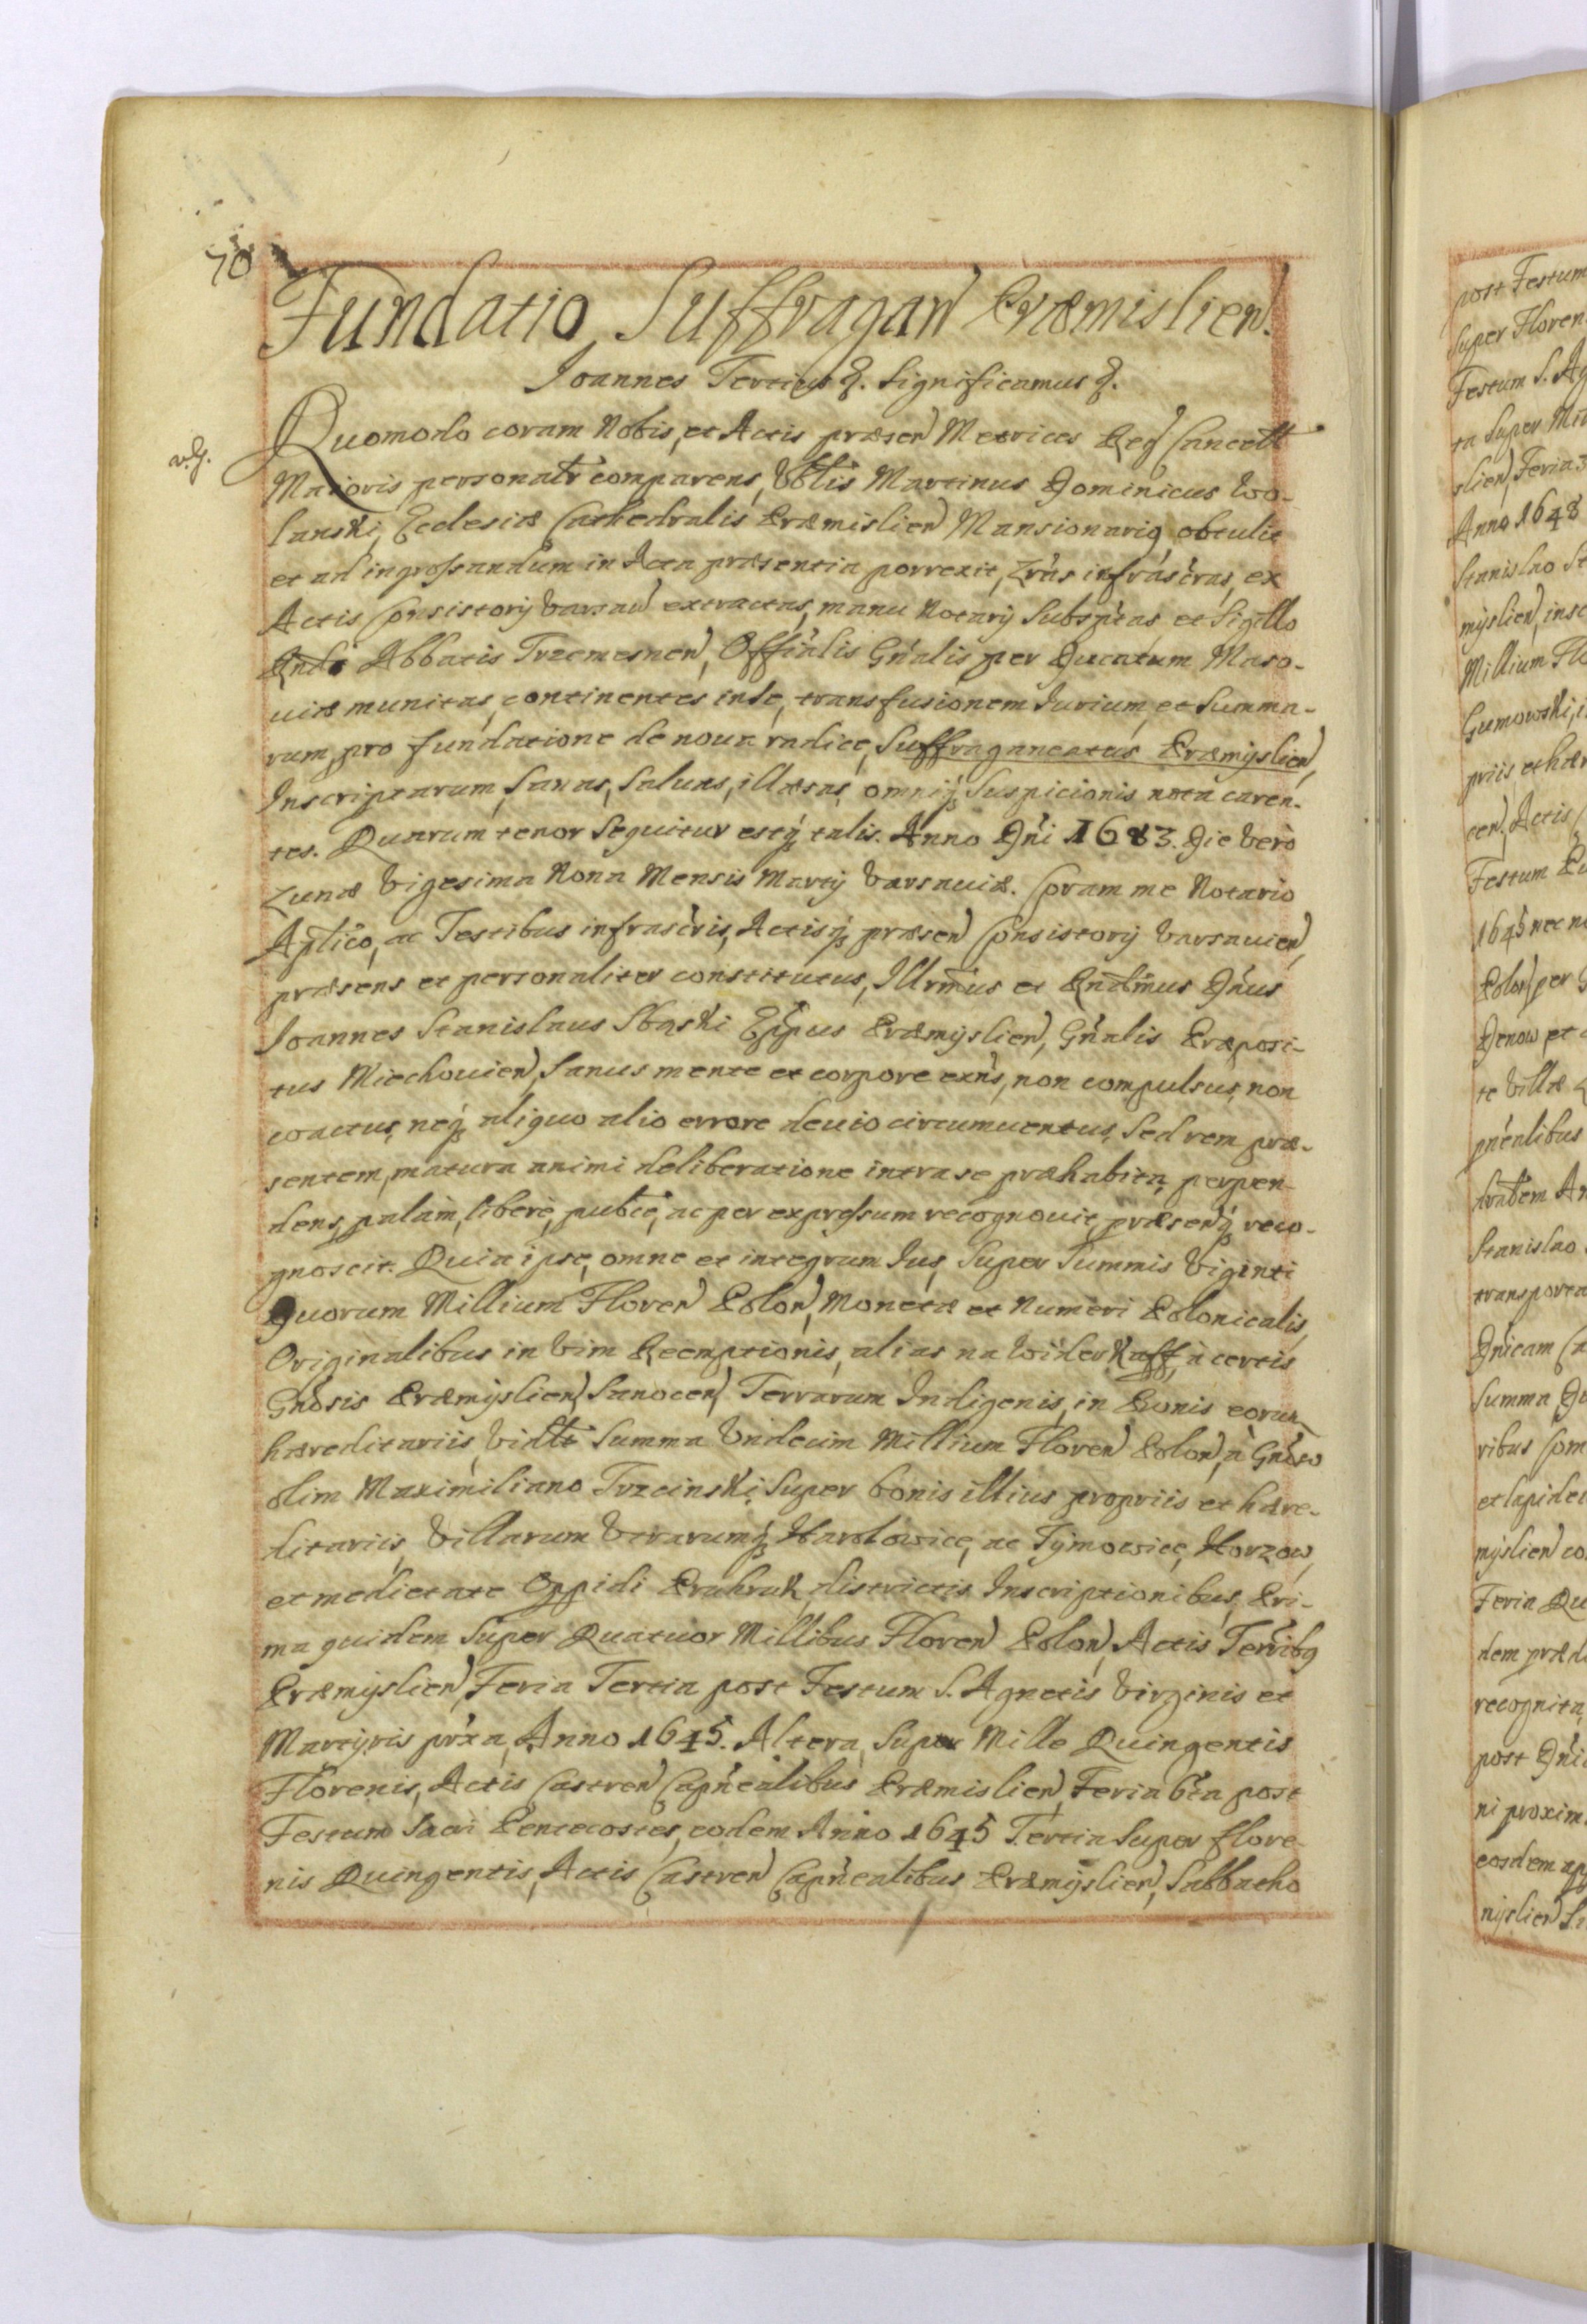 70
Fundatio Suffragan Præmislien.
Joannes Tertius &. Significamus &.
v. g.
Quomodo coram Nobis, et Actis præsen Metrices Reg Cancell
Maioris personalr comparens, Vblis Martinus Dominicus Wo-
lanski, Ecclesiæ Cathedralis Præmislien Mansionarig obtulit
et ad ingrossandum in Acta præsentia porrexit, Lras infrascras, ex
Actis Consistorij Varsaw extractas, manu Notarij Subsptas et Sigillo
Rndi Abbatis Trzemesnen, Offialis Gnalis per Ducatum Maso-
uiæ munitas, continentes in se, transfusionem Iurium, et Summa-
rum, pro fundatione de noua radice, Suffraganeatus Præmyslien,
Inscriptarum, Sanas, Saluas, illæsas, omniq Suspicionis nota caren-
tes. Quarum tenor Sequitur estq talis. Anno Dni 1683. Die Verò
Lunæ Vigesima Nona Mensis Martij Varsauiæ. Coram me Notario
Aplico, ac Testibus infrascris, Actisq præsen Consistorij Varsauien,
præsens et personaliter constitutus, Illrmus et Rndmus Dnus
Joannes Stanislaus Sbąski Eppus Præmyslien, Gnalis Præposi-
tus Miechouien, Sanus mente et corpore exns, non compulsus, non
coactus, neq aliquo alio errore deuio circumuentus, Sed rem præ-
sentem, matura animi deliberatione intra se præhabita, perpen-
dens, palàm, liberè, publce, ac per expressum recognouit, præsenq reco-
gnoscit. Quia ipse, omne et integrum Ius, Super Summis Viginti
Quorum Millium Floren Polon, Monetæ et Numeri Polonicalis,
Originalibus in Vim Reemptionis, alias na Widerkaff, à certis
Gnosis Præmyslien, Sanocen, Terrarum Indigenis, in Bonis eorun
hæreditariis, Vidlt Summa Vndecim Millium Floren Polon, à Gnoso
olim Maximiliano Trzcinski, Super bonis illius propriis et hære-
ditariis, Villarum Vtrarumq Harlowice, ac Tymowice, Horzow,
et medietate Oppidi Pruhnik, districtis Inscriptionibus, Pri-
ma quidem Super Quatuor Millibus Floren Polon, Actis Terribg
Præmyslien, Feria Tertia post Festum S. Agnetis Virginis et
Martyris prxa, Anno 1645. Altera, Super Mille Quingentis
Florenis, Actis Castren Capnealibus Præmislien, Feria 6ta post
Festum Sacri Pentecostes, eodem Anno 1645 Tertia Super flore-
nis Quingentis, Actis Castren Capnealibus Præmyslien, Sabbatho
post Festum
Super Floren
Festum S. Ag
ta Super Mil
slien, Feria 3
Anno 1648
Stanislao St
myslien, insc
Millium Flo
Gumowski, i
priis, et hær
cen, Actis
Festum
1645 nec no
Polon per
te Villæ
pnealibus
Stanislao
transporta
Dnicam Ca
Summa Du
ribus Com
et lapide
myslien co
Feria Qu
dem præd
recognita,
post Dni
ni proxim
eosdem ap
myslien